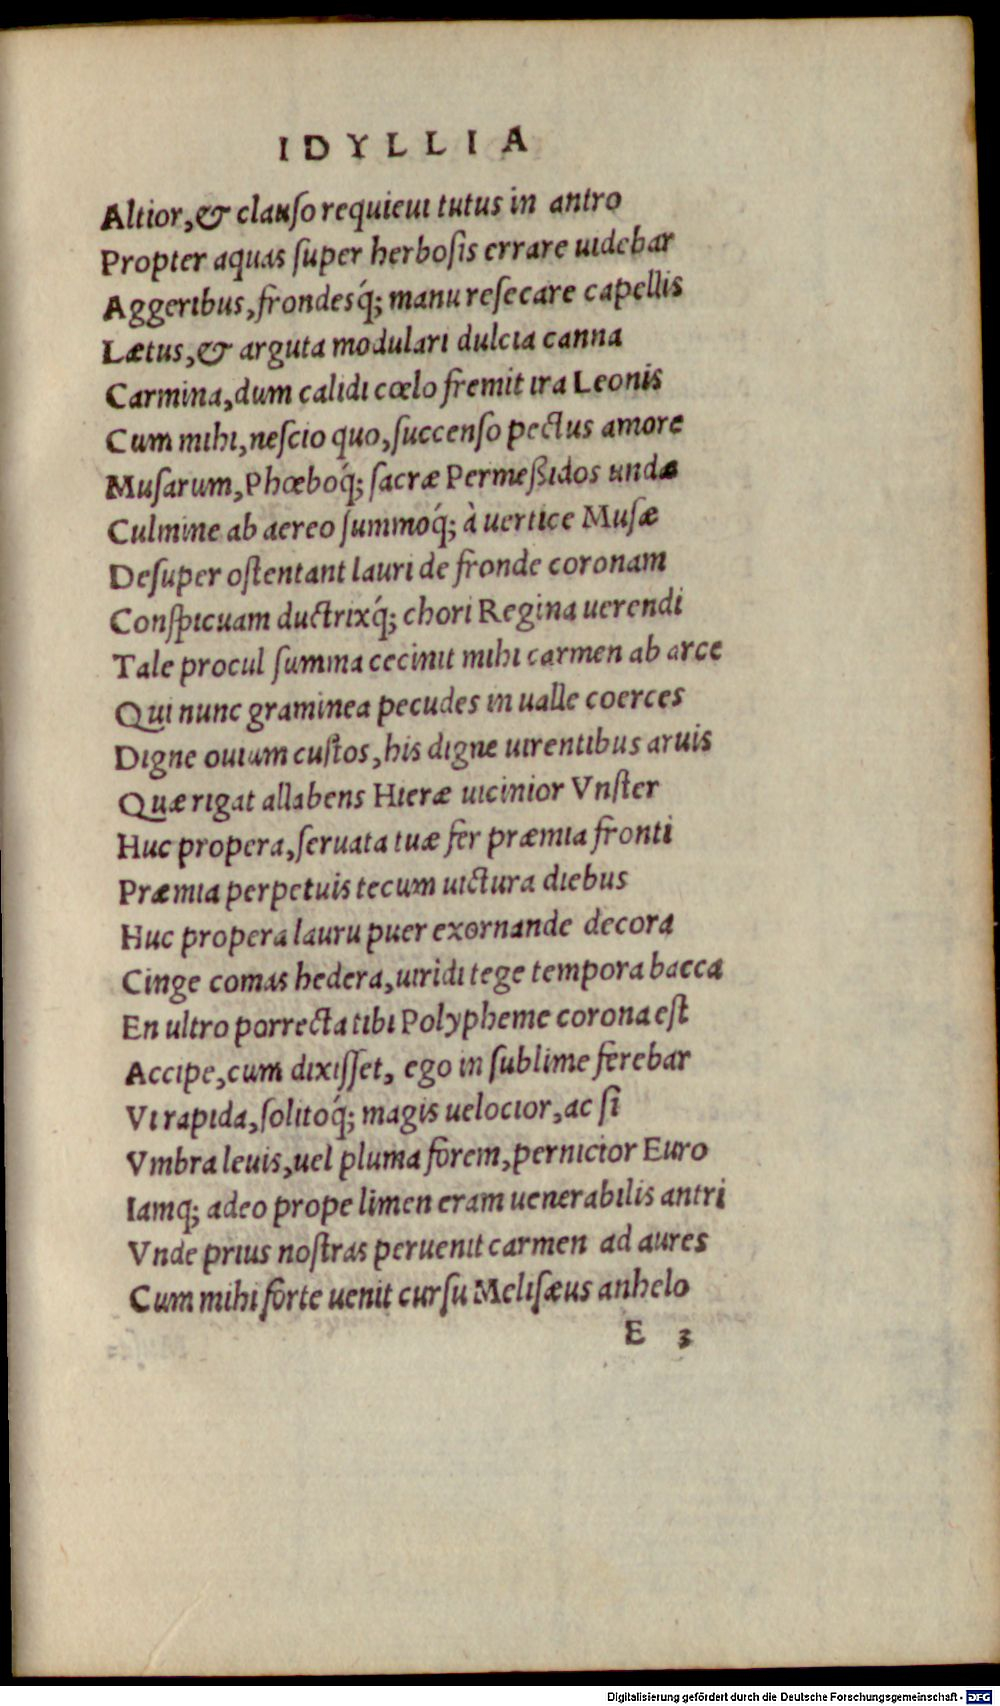 IDYLLIA
Altior, & clauſo requieui tutus in antro
Propter aquas ſuper herboſis errare uidebar
Aggeribus, frondesq́; manu reſecare capellis
Lætus, & arguta modulari dulcia canna
Carmina, dum calidi cœlo fremit ira Leonis
Cum mihi, neſcio quo, ſuccenſo pectus amore
Muſarum, Phœboq́; ſacræ Permeßidos undæ
Culmine ab aereo ſummoq́; à uertice Muſæ
Deſuper oſtentant lauri de fronde coronam
Conſpicuam ductrixq́; chori Regina uerendi
Tale procul ſumma cecinit mihi carmen ab arce
Qui nunc graminea pecudes in ualle coerces
Digne ouium cuſtos, his digne uirentibus aruis
Quæ rigat allabens Hieræ uicinior Vnſter
Huc propera, ſeruata tuæ fer præmia fronti
Præmia perpetuis tecum uictura diebus
Huc propera lauru puer exornande decora
Cinge comas hedera, uiridi tege tempora bacca
En ultro porrecta tibi Polypheme corona eſt
Accipe, cum dixiſſet, ego in ſublime ferebar
Vi rapida, ſolitoq́; magis uelocior, ac ſi
Vmbra leuis, uel pluma forem, pernicior Euro
Iamq; adeo prope limen eram uenerabilis antri
Vnde prius noſtras peruenit carmen ad aures
Cum mihi forte uenit curſu Meliſæus anhelo
E 3
Digitalisierung gefördert durch die Deutsche Forschungsgemeinschaft - DFG